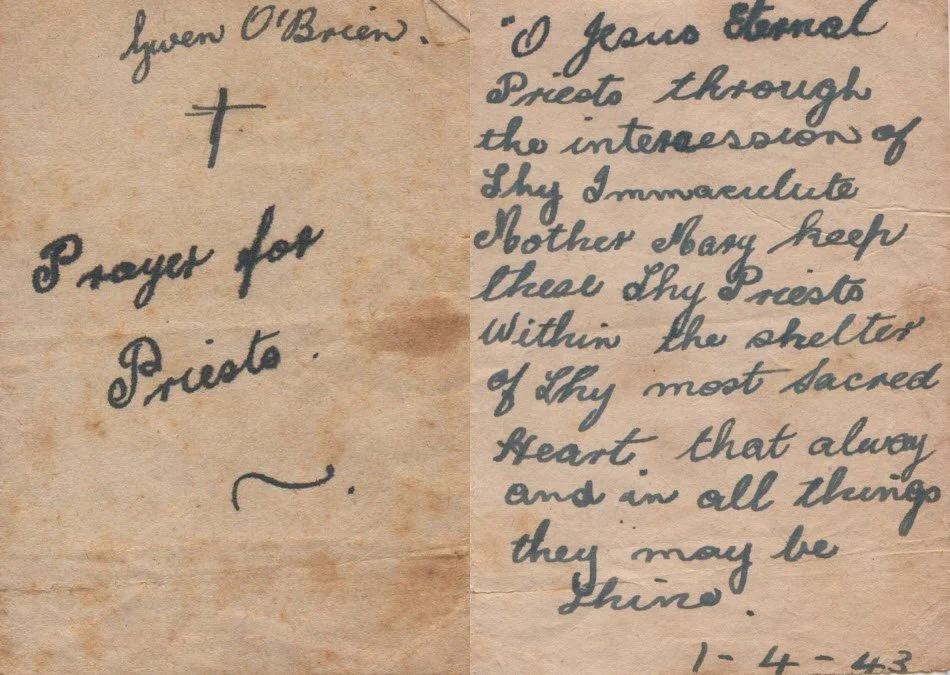 Gwen O'Brien.
Prayer for
Priests.
"O Jesus Eternal
Priests through
the intercession of
Thy Immaculute
Mother Mary keep
these Thy Priests
Within the shelter
of Thy most Sacred
Heart. that alway
and in all things
they may be
Thine.
1-4-43